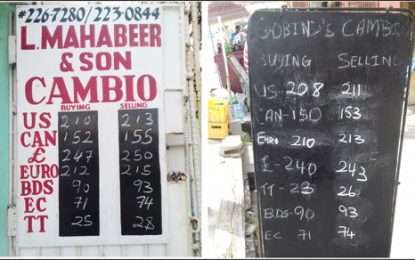 #226-7280/223-0844
L. MAHABEER
& SON
CAMBIO
BUYING SELLING
US 210 213
CAN 152 155
£ 247 250
EURO 212 215
BDS 90 93
EC 71 74
TT 25 28
GOBIND'S CAMBIO
BUYING SELLING
US-208 211
CAN-150 153
EURO 210 213
£-240 243
TT-23 26
BDS-90 93
EC 71 74